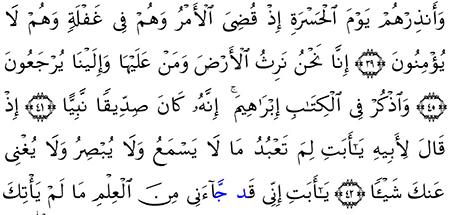 وَأَنذِرْهُمْ يَوْمَ ٱلْحَسْرَةِ إِذْ قُضِىَ ٱلْأَمْرُ وَهُمْ فِى غَفْلَةٍ وَهُمْ لَا
يُؤْمِنُونَ ﴿٣٩﴾ إِنَّا نَحْنُ نَرِثُ ٱلْأَرْضَ وَمَنْ عَلَيْهَا وَإِلَيْنَا يُرْجَعُونَ
﴿٤٠﴾ وَٱذْكُرْ فِى ٱلْكِتَـٰبِ إِبْرَٰهِيمَ ۚ إِنَّهُۥ كَانَ صِدِّيقًا نَّبِيًّا ﴿٤١﴾ إِذْ
قَالَ لِأَبِيهِ يَـٰٓأَبَتِ لِمَ تَعْبُدُ مَا لَا يَسْمَعُ وَلَا يُبْصِرُ وَلَا يُغْنِى
عَنكَ شَيْـًٔا ﴿٤٢﴾ يَـٰٓأَبَتِ إِنِّى قَد جَّآءَنِى مِنَ ٱلْعِلْمِ مَا لَمْ يَأْتِكَ